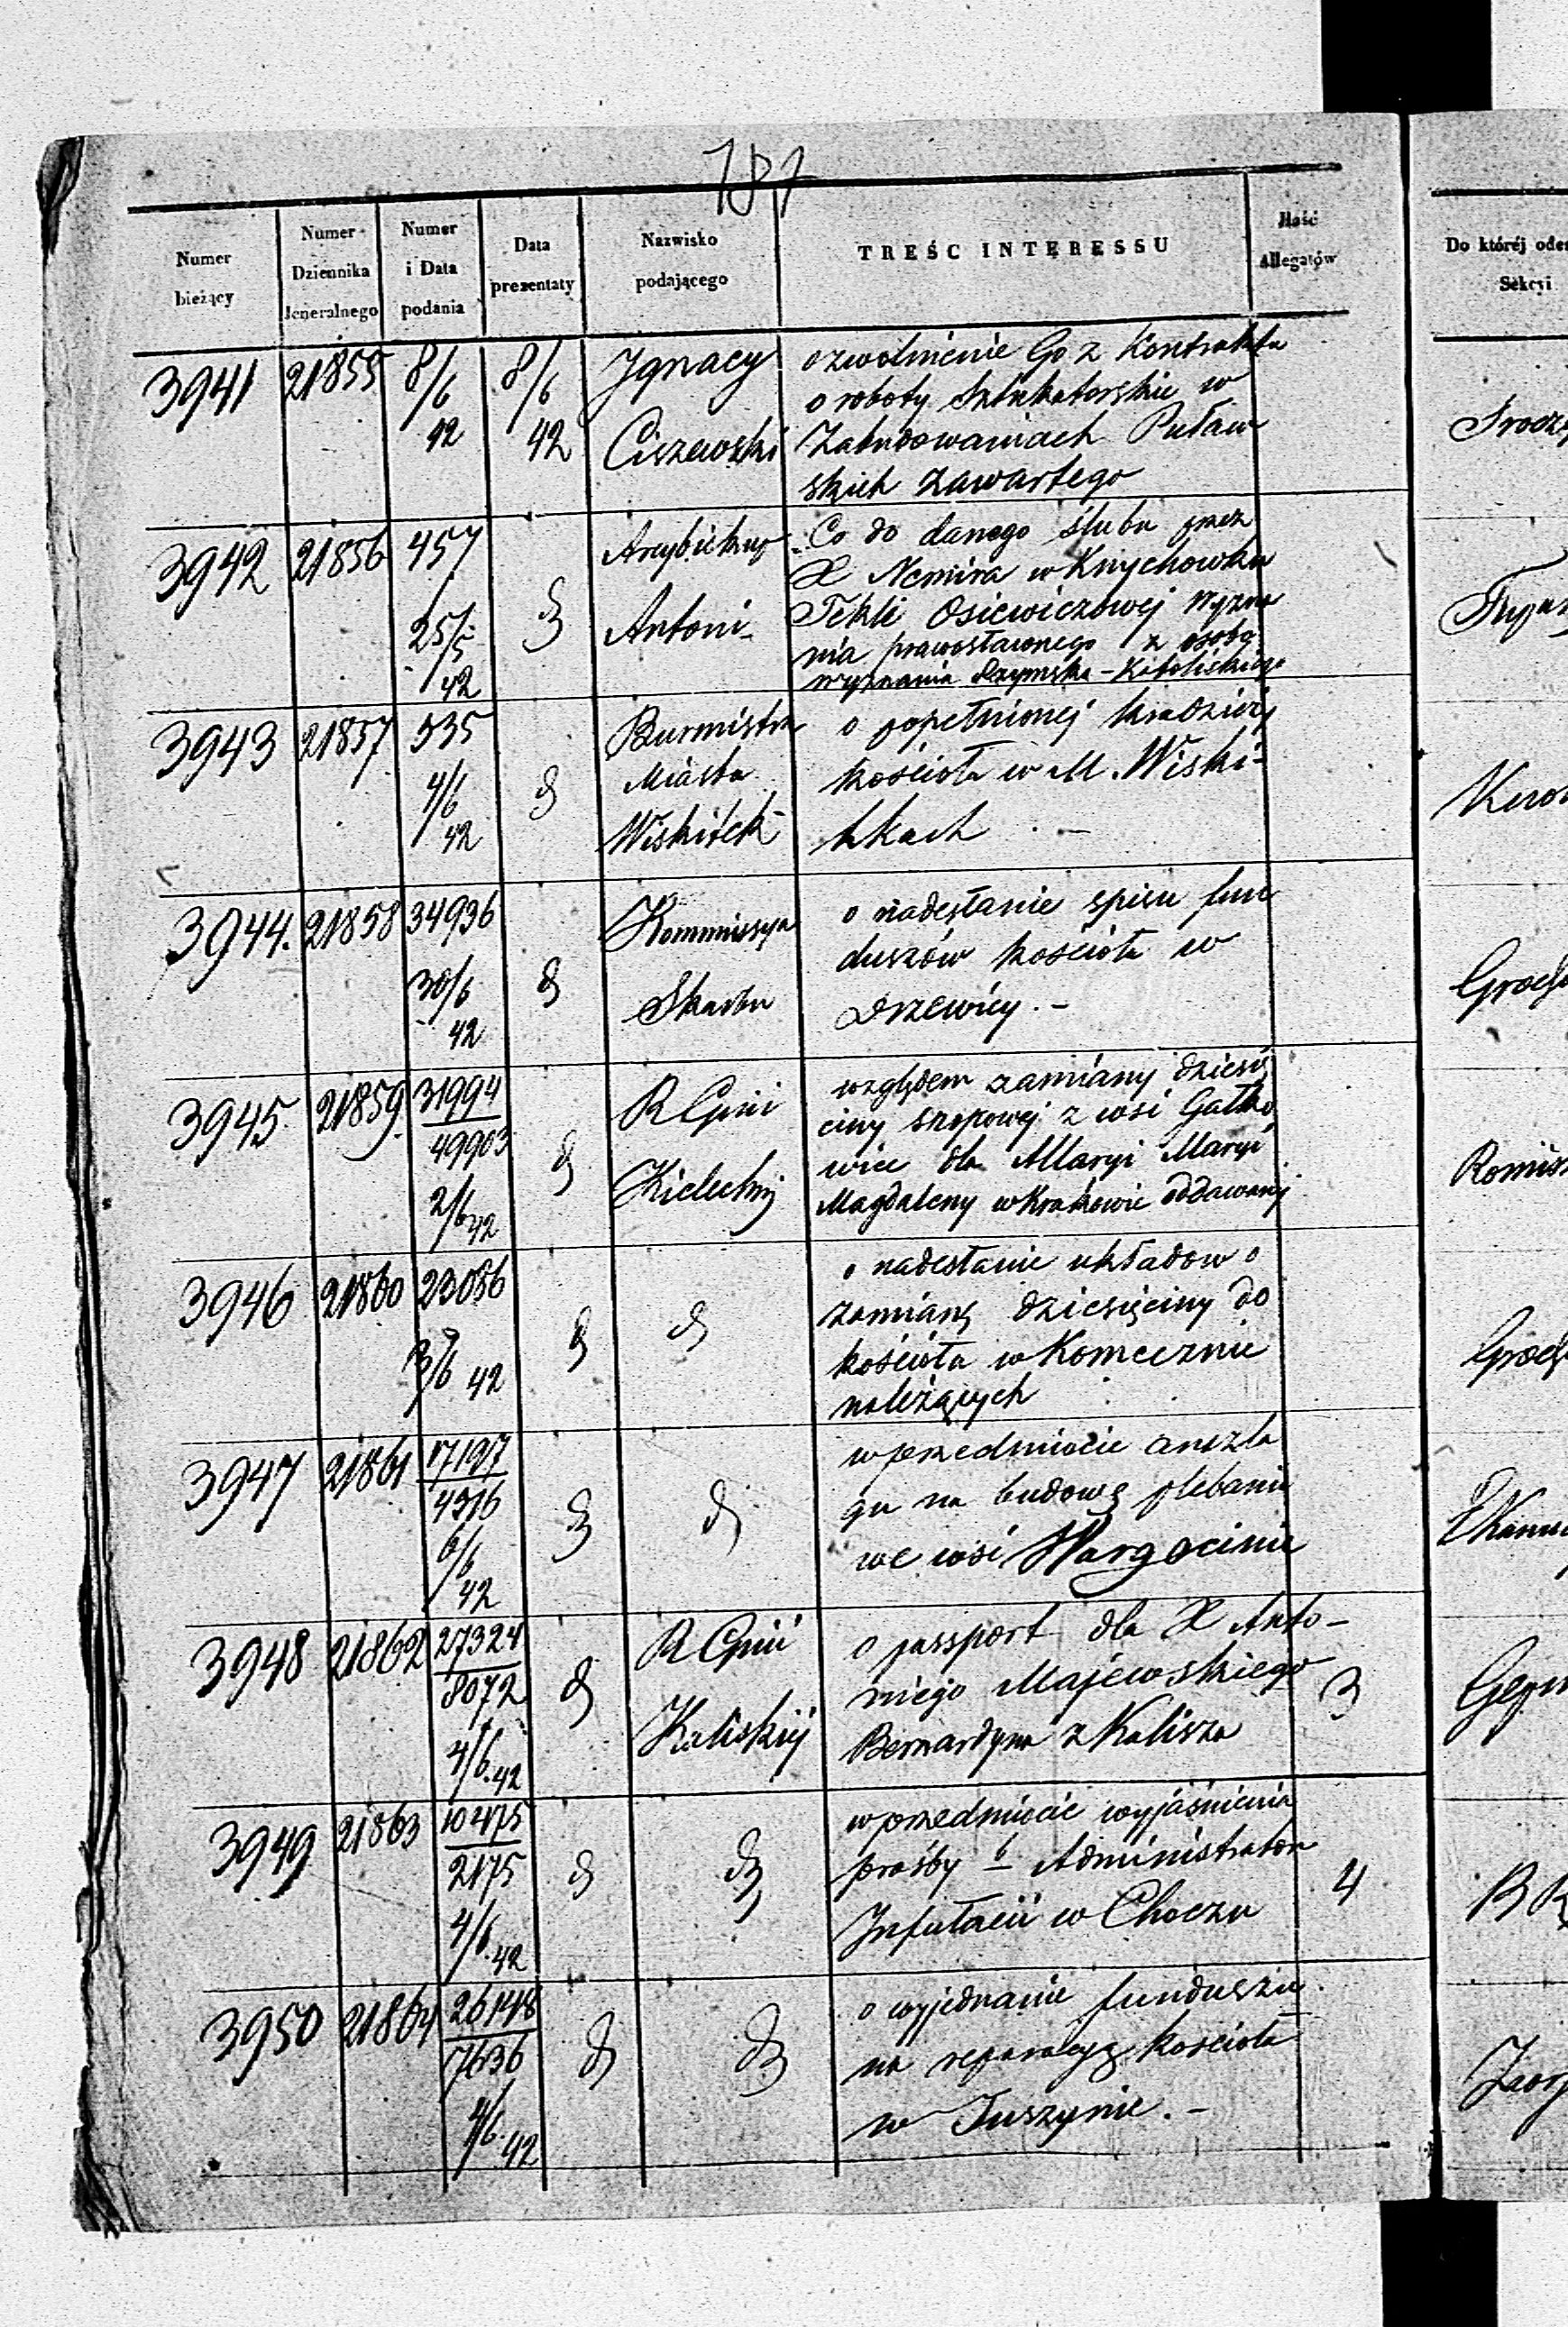 787
Numer bieżący
Numer Dziennika Jeneralnego
Numer i Data podania
Data prezentaty
Nazwisko podającego
TREŚĆ INTERESSU
Ilość Allegatów
Do któréj
Sekcyi
3941 21855 8/6 42 8/6 42 Ignacy Ciszewski
o zwolnienie Go z Kontraktu
o roboty Sztukatorskie w
Zabudowaniach Puław
skich zawartego
3942 21856 457 25/5 42 d Arcybiskup Antoni
Co do danego ślubu przez
X Nemira w Knychowku
Tekli Osiewiczowej wyzna
nia prawosławnego z osobą
wyznania Rzymsko-Katolickiego
3943 21857 535 4/6 42 d Burmistrz Miasta Wiskitek
o popełnionej kradzieży
kościoła w M. Wiski-
tkach
3944. 21858 34936 30/6 42 d Kommissya Skarbu
o nadesłanie spisu fun
duszów kościoła w
Drzewicy.-
3945 21859 31994 49903 2/6 42 d R Gnii Kieleckiej
względem zamiany dziesię
ciny snopowej z wsi Gałko
wice dla Maryi Maryi
Magdaleny w Krakowie oddawanej
3946 21860 23086 3/6 42 d d
o nadesłanie układow o
zamianę dziesięciny do
kościoła w Komecznie
należących
3947 21861 17197 4316 6/6 42 d d
w przedmiocie anszla
gu na budowę plebanii
we wsi Wargocinie
3948 21862 27324 8072 4/6 42 d R Gnii Kaliskiej
o passport dla X Anto-
niego Majewskiego 3
Bernardyna z Kalisza
3949 21863 10475 2175 4/6 42 d d
w przedmiocie wyjaśnienia
prośby b Administratora
Infułacii w Choczu 4
3950 21864 26148 7636 4/6 42 d d
o wyjednanie funduszu
na reparacyą kościoła
w Tuszynie.-